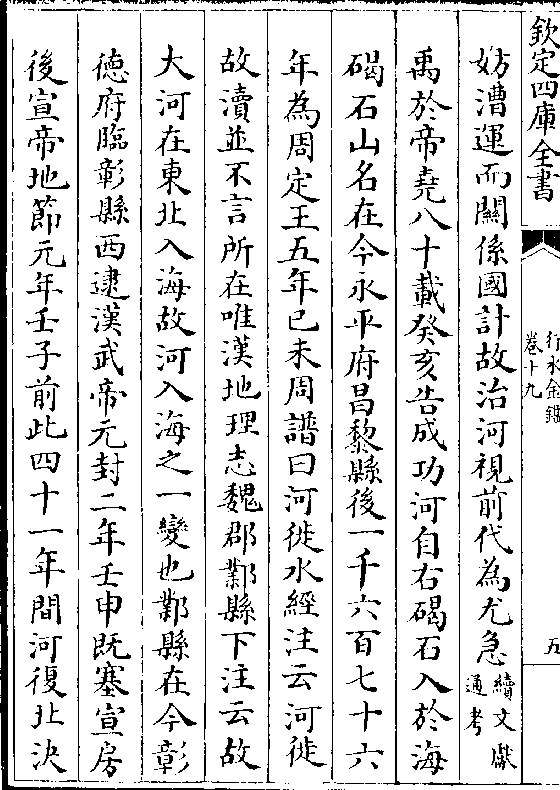 欽定四庫全書
行水金鑑
卷十九
五
妨漕運而關係國計故治河視前代為尤急續文獻通考
禹於帝堯八十載癸亥告成功河自右碣石入於海
碣石山名在今永平府昌黎縣後一千六百七十六
年為周定王五年己未周譜曰河徙水經注云河徙
故瀆並不言所在唯漢地理志魏郡鄴縣下注云故
大河在東北入海故河入海之一變也鄴縣在今彰
德府臨彰縣西逮漢武帝元封二年壬申既塞宣房
後宣帝地節元年壬子前此四十一年間河復北決